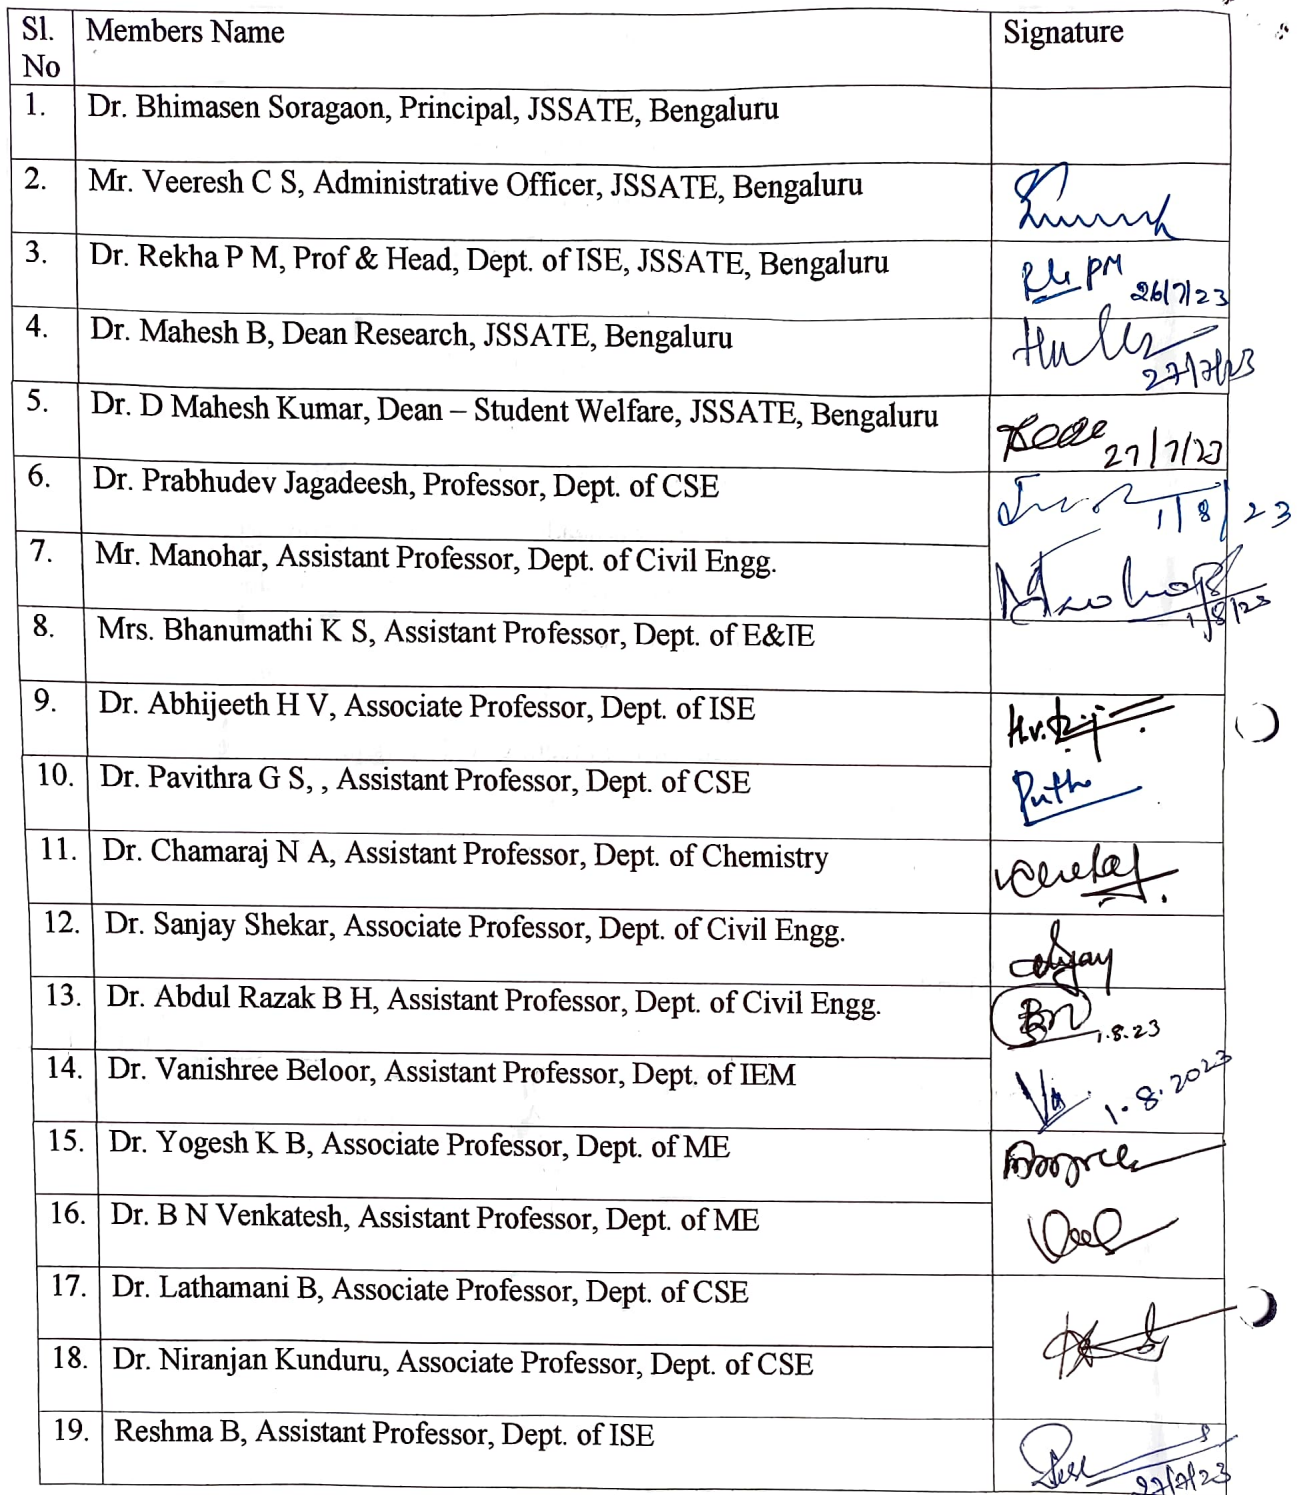 Sl. No Members Name Signature
1. Dr. Bhimasen Soragaon, Principal, JSSATE, Bengaluru
2. Mr. Veeresh C S, Administrative Officer, JSSATE, Bengaluru
3. Dr. Rekha P M, Prof & Head, Dept. of ISE, JSSATE, Bengaluru
PM 26/7/23
4. Dr. Mahesh B, Dean Research, JSSATE, Bengaluru
27/7/23
5. Dr. D Mahesh Kumar, Dean – Student Welfare, JSSATE, Bengaluru
27/7/23
6. Dr. Prabhudev Jagadeesh, Professor, Dept. of CSE
1/8/23
7. Mr. Manohar, Assistant Professor, Dept. of Civil Engg.
1/8/23
8. Mrs. Bhanumathi K S, Assistant Professor, Dept. of E&IE
9. Dr. Abhijeeth H V, Associate Professor, Dept. of ISE
10. Dr. Pavithra G S, , Assistant Professor, Dept. of CSE
11. Dr. Chamaraj N A, Assistant Professor, Dept. of Chemistry
12. Dr. Sanjay Shekar, Associate Professor, Dept. of Civil Engg.
13. Dr. Abdul Razak B H, Assistant Professor, Dept. of Civil Engg.
1.8.23
14. Dr. Vanishree Beloor, Assistant Professor, Dept. of IEM
1.8.2023
15. Dr. Yogesh K B, Associate Professor, Dept. of ME
16. Dr. B N Venkatesh, Assistant Professor, Dept. of ME
17. Dr. Lathamani B, Associate Professor, Dept. of CSE
18. Dr. Niranjan Kunduru, Associate Professor, Dept. of CSE
19. Reshma B, Assistant Professor, Dept. of ISE
27/7/23